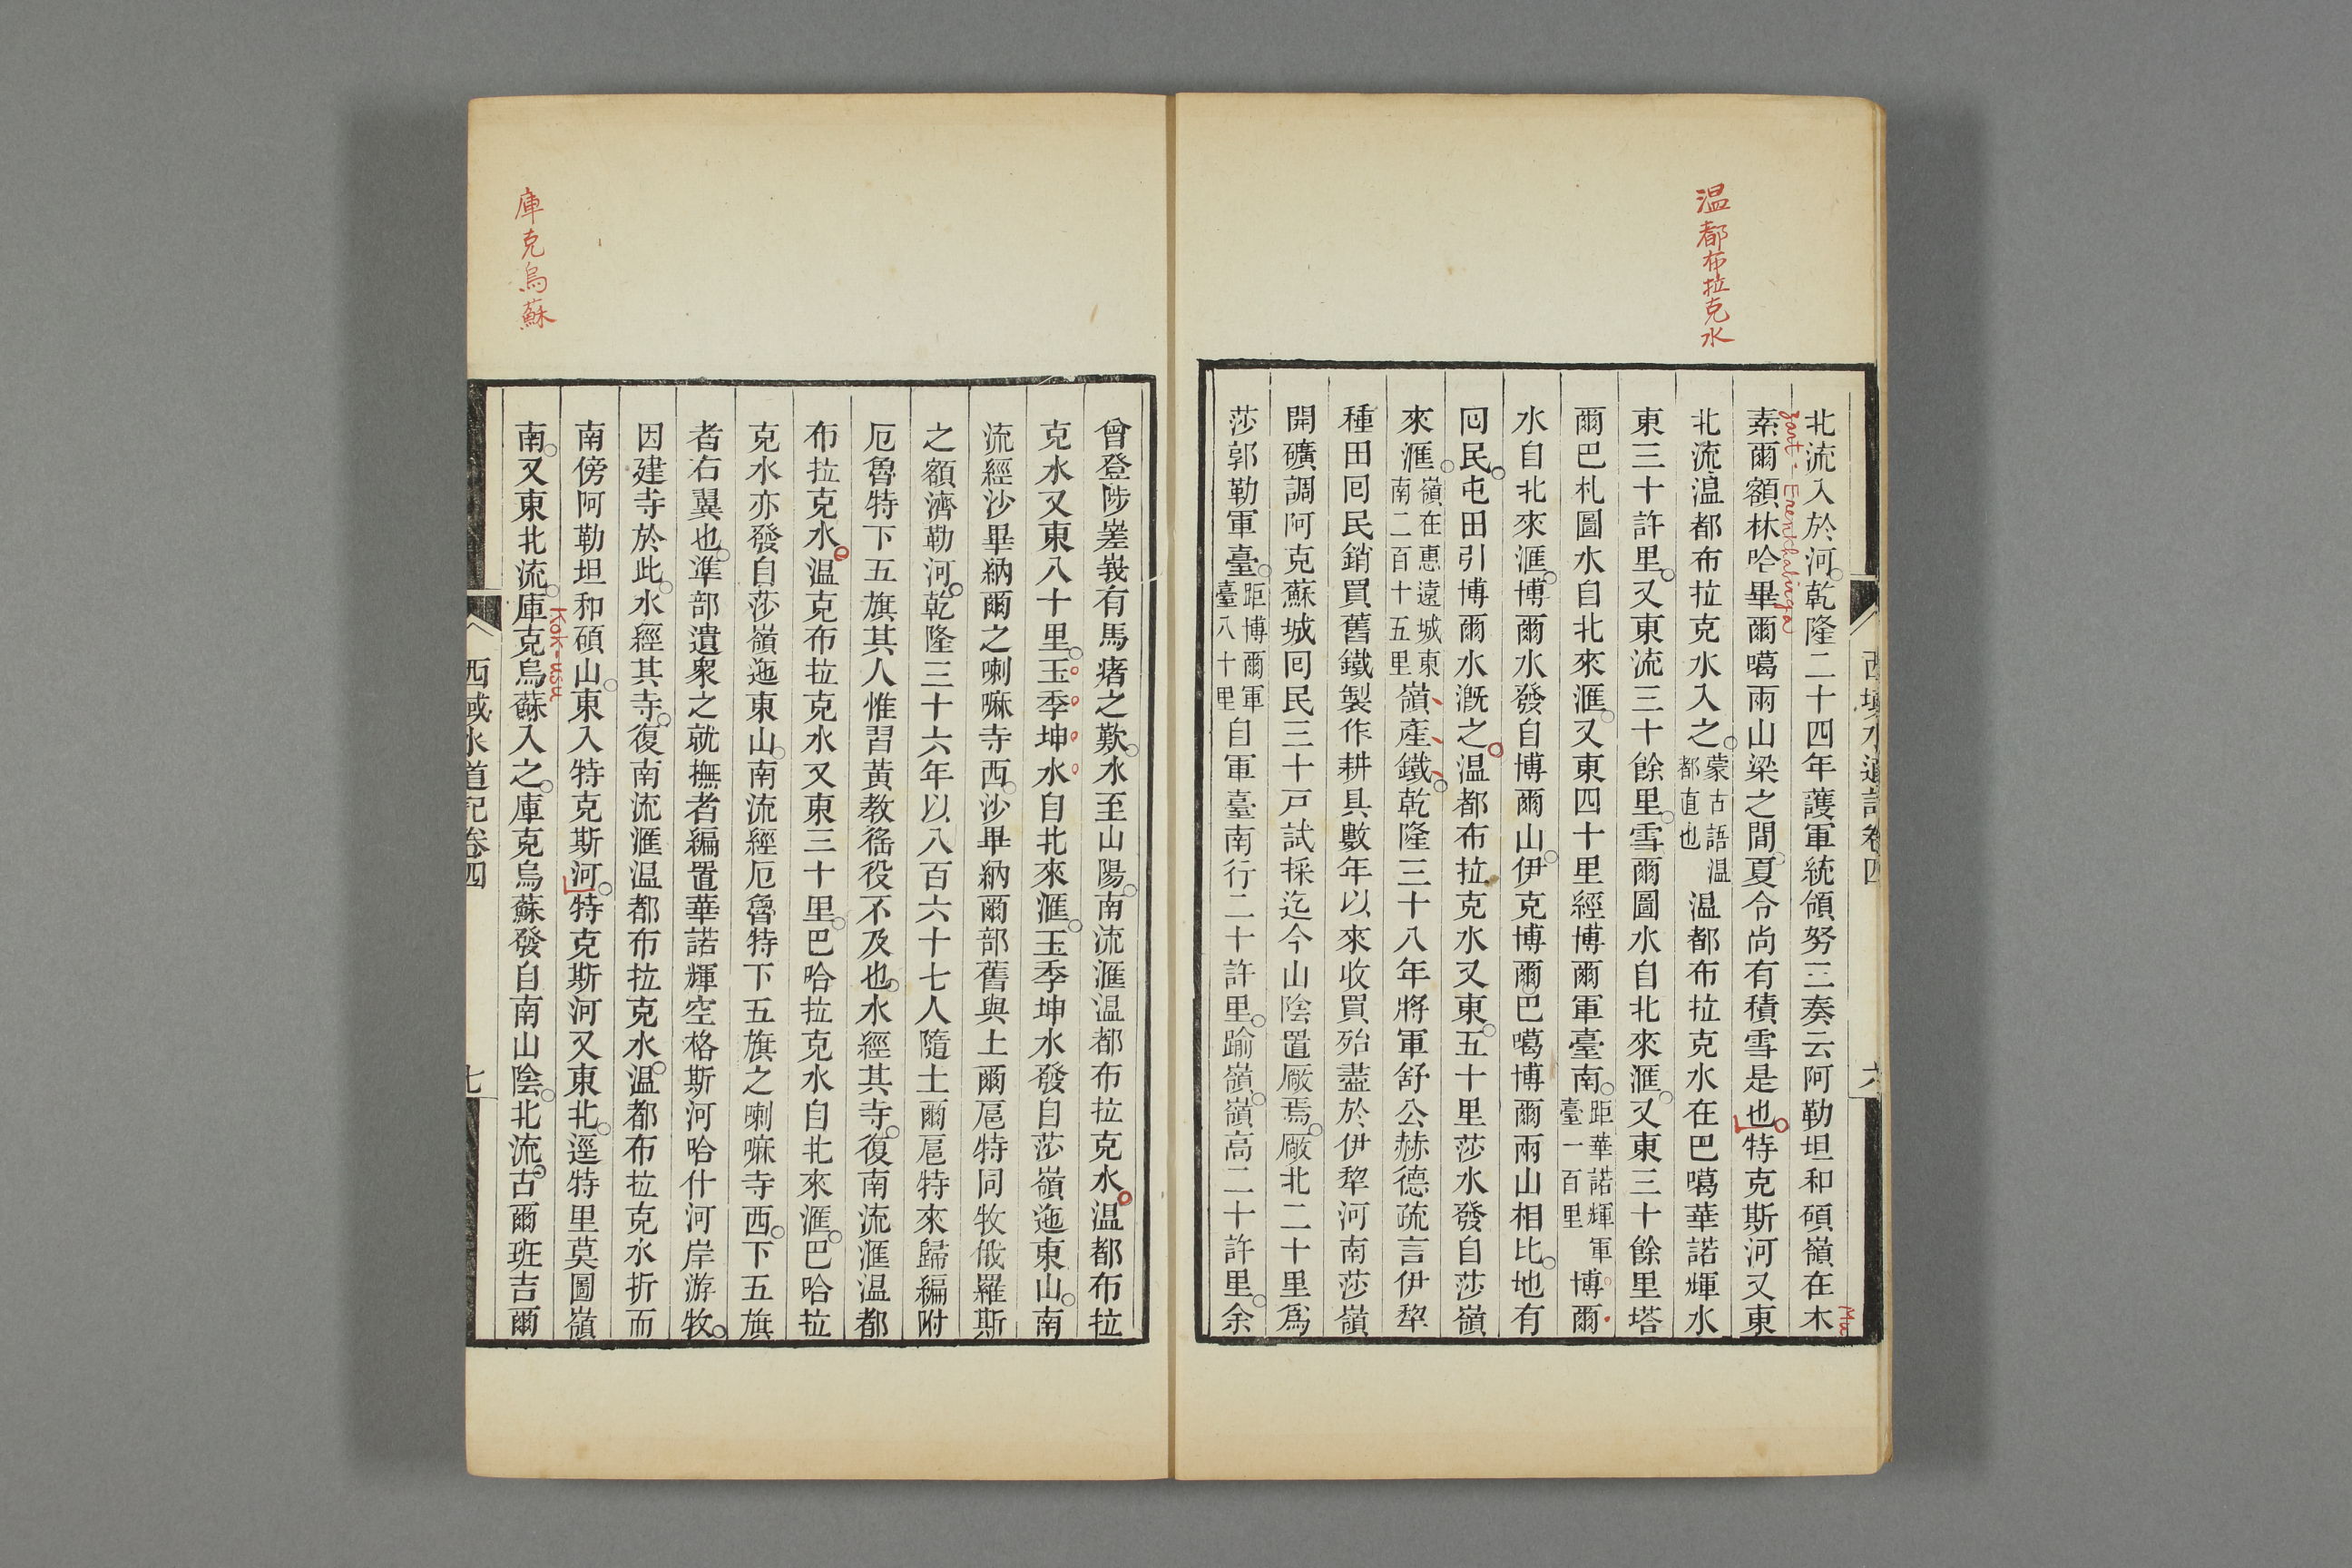 温都布拉克水
北流入於河乾隆二十四年護軍統領努三奏云阿勒坦和碩嶺在木
素爾額林哈畢爾噶雨山梁之間夏令尚有積雪是也特克斯河又東
北流溫都布拉克水入之蒙古語温都直也温都布拉克水在巴噶華諾輝水
東三十許里又東流三十餘里雪爾圖水自北來滙又東三十餘里塔
爾巴札圖水自北來滙又東四十里經博爾軍臺南距華諾輝軍臺一百里博爾
水自北來滙博爾水發自博爾山伊克博爾巴噶博爾兩山相比地有
回民屯田引博爾水漑之温都布拉克水又東五十里莎水發自莎嶺
來滙嶺在惠遠城東南二百十五里嶺產鐵乾隆三十八年將軍舒公赫德疏言伊犂
種田回民銷買舊鐵製作耕具數年以來收買殆盡於伊犂河南莎嶺
開礦調阿克蘇城回民三十戸試採迄今山陰置厰焉厰北二十里爲
莎郭勒軍臺距博爾軍臺八十里自軍臺南行二十許里踰嶺嶺高二十許里余
西域水道記卷四
六
Erenkhabirga
曾登陟嵳峩有馬瘏之歎水至山陽南流滙温都布拉克水温都布拉
克水又東八十里玉季坤水自北來滙玉季坤水發自莎嶺迤東山南
流經沙畢納爾之喇嘛寺西沙畢納爾部舊與土爾扈特同牧俄羅斯
之額濟勒河乾隆三十六年以八百六十七人隨土爾扈特來歸編附
厄魯特下五旗其人惟習黃教徭役不及也水經其寺復南流滙温都
布拉克水温克布拉克水又東三十里巴哈拉克水自北來滙巴哈拉
克水亦發自莎嶺迤東山南流經厄魯特下五旗之喇嘛寺西下五旗
者右翼也準部遺衆之就撫者編置華諾輝空格斯河哈什河岸游牧
因建寺於此水經其寺復南流滙温都布拉克水温都布拉克水折而
南傍阿勒坦和碩山東入特克斯河特克斯河又東北逕特里莫圖嶺
南又東北流庫克烏蘇入之庫克烏蘇發自南山陰北流古爾班吉爾
Kok-usu
庫克烏蘇
西域水道記卷四
七